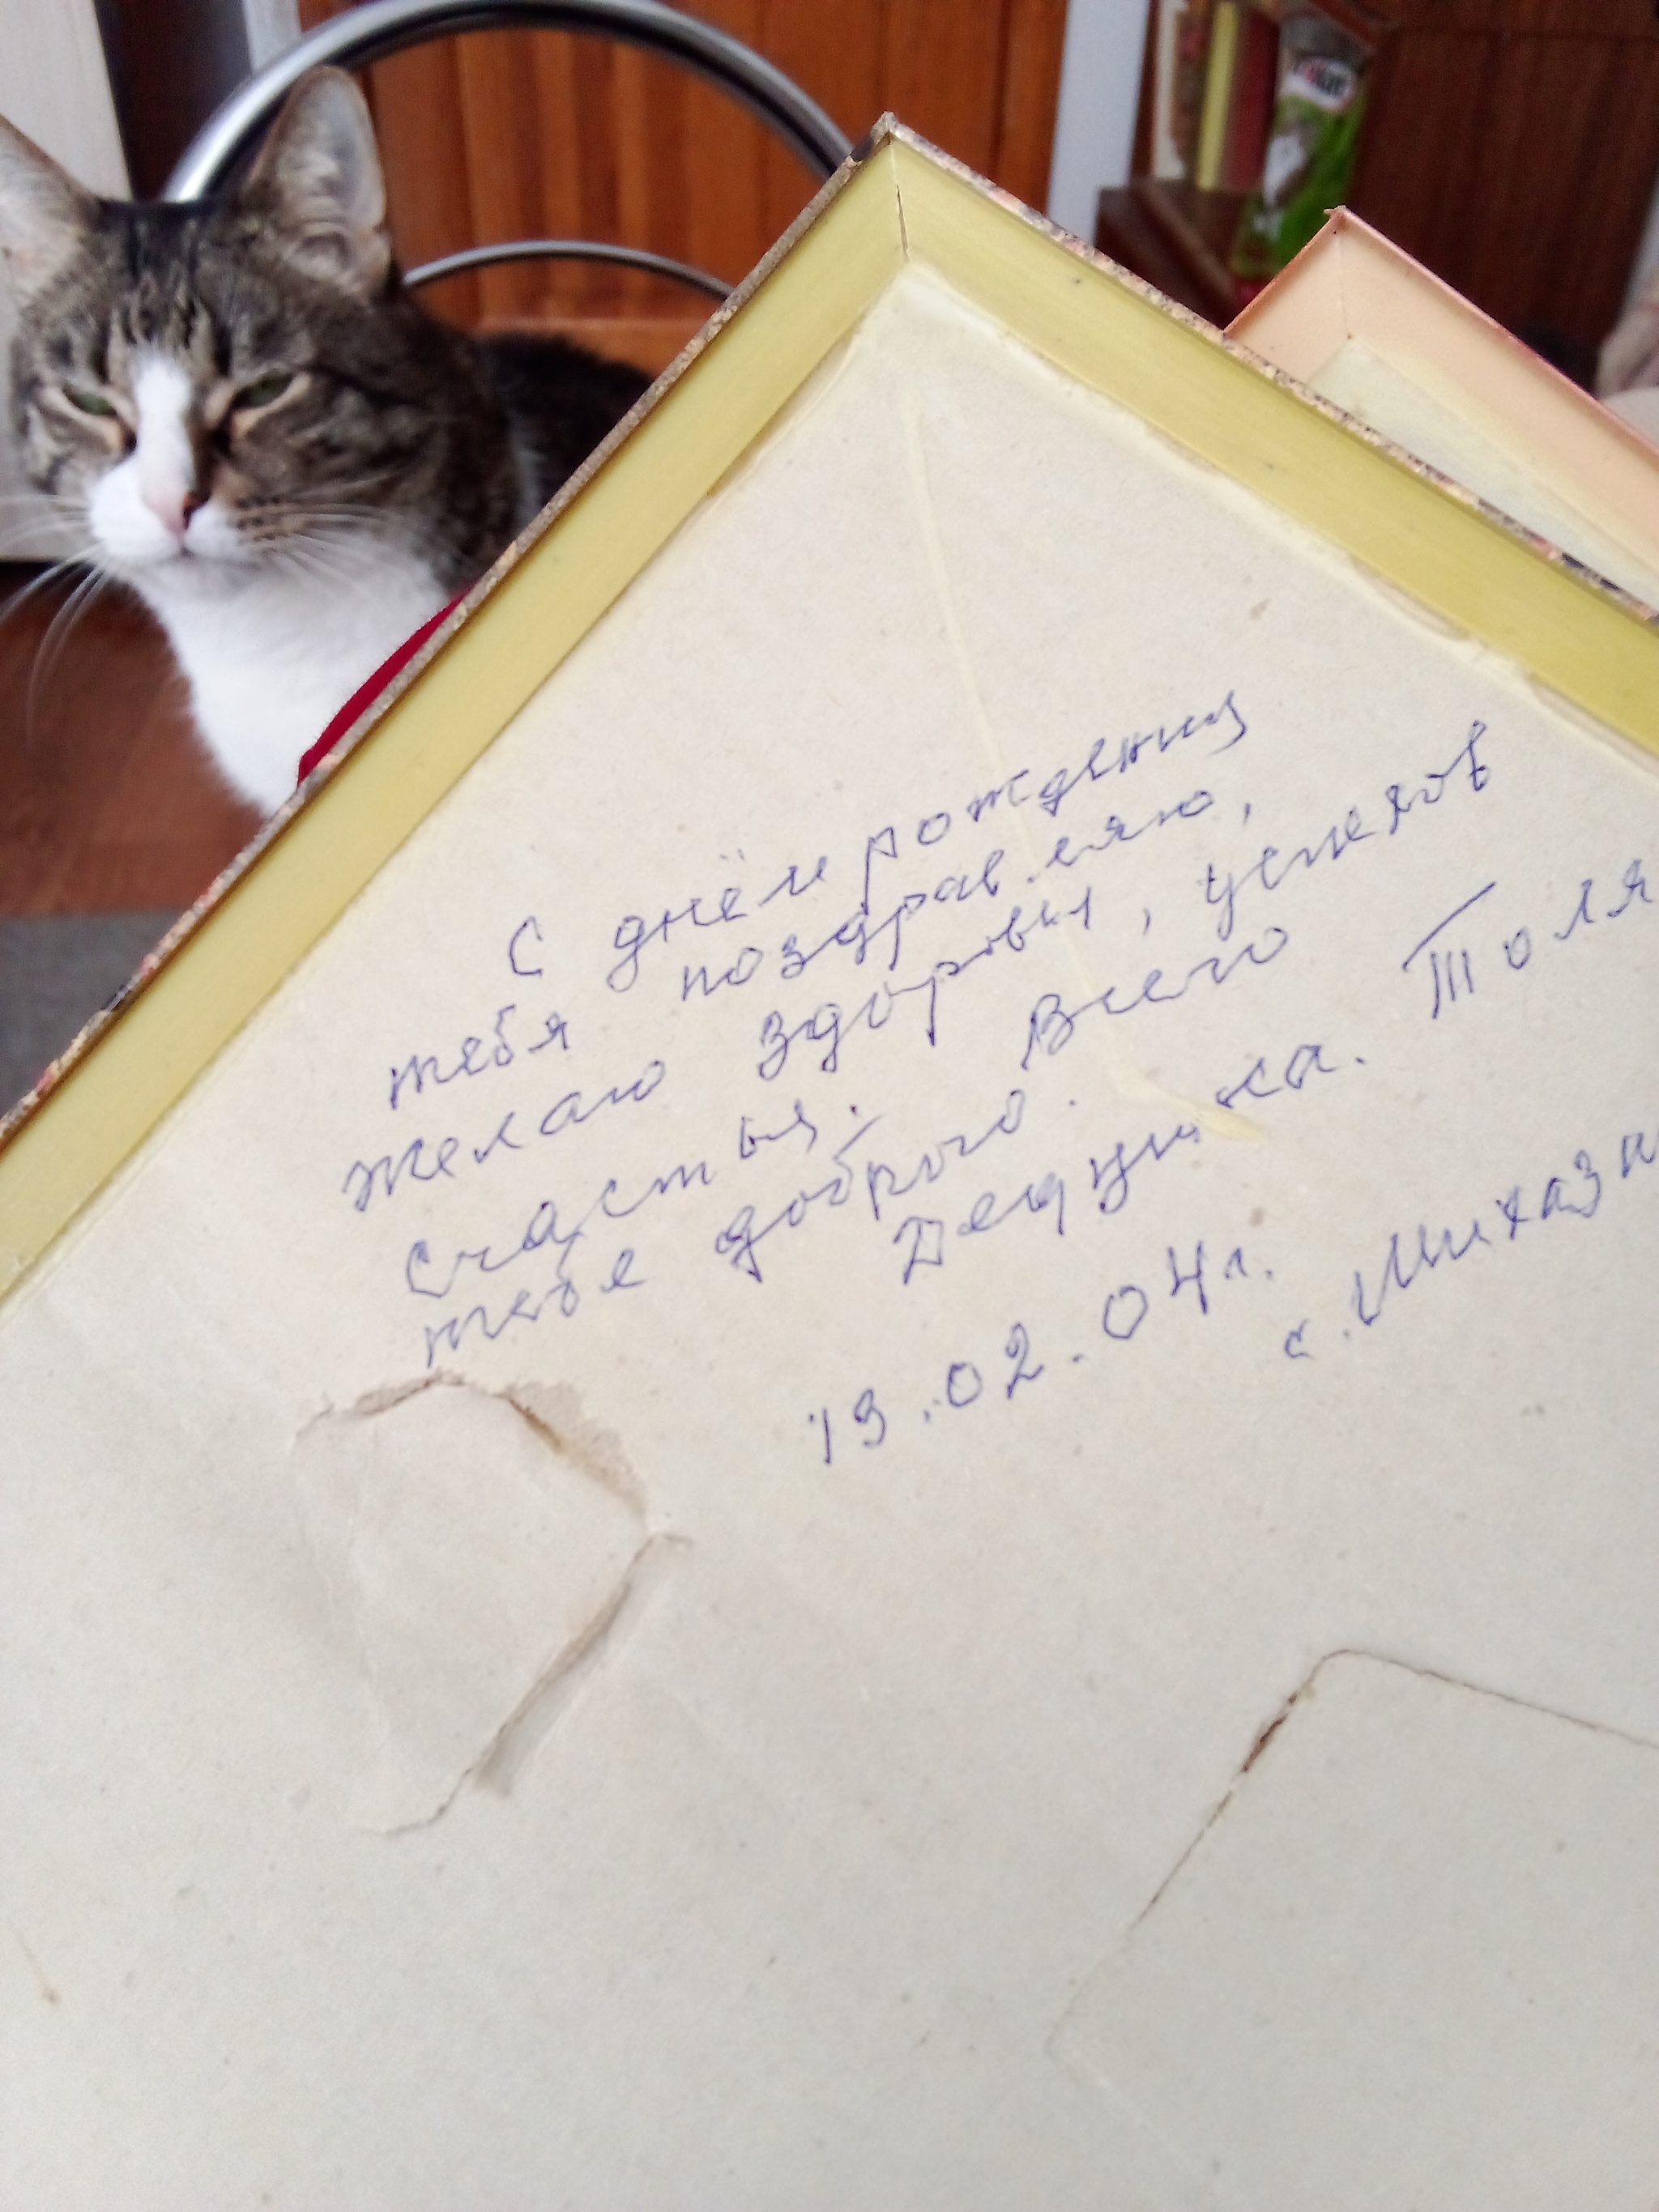 С днём рождения
тебя поздравляю,
желаю здоровья, успехов
счастья. Всего
тебе доброго.
Дедушка. Толя
19.02.04г.